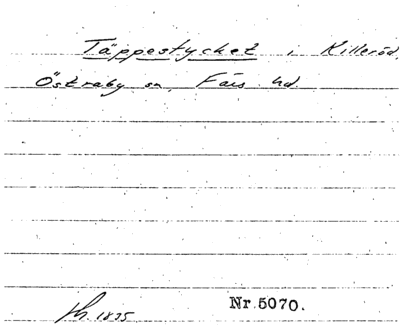 Täppestycket i Killeröd,
Östraby sn, Färs hd
Nr 5070.
1835